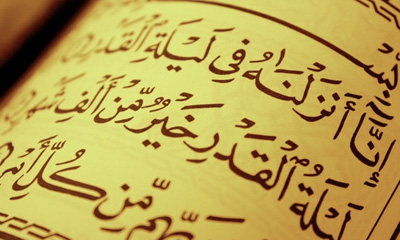 بِسْ
إِنَّآ أَنزَلْنَٰهُ فِى لَيْلَةِ ٱلْقَدْرِ
لَيْلَةُ ٱلْقَدْرِ خَيْرٌ مِّنْ أَلْفِ شَهْرٍ
هِم مِّن كُلِّ أَمْ